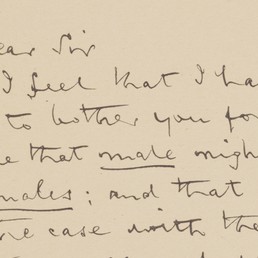 ear Sir
I feel that I ha
to bother you fo
e that male migh
males; and that
he case with the